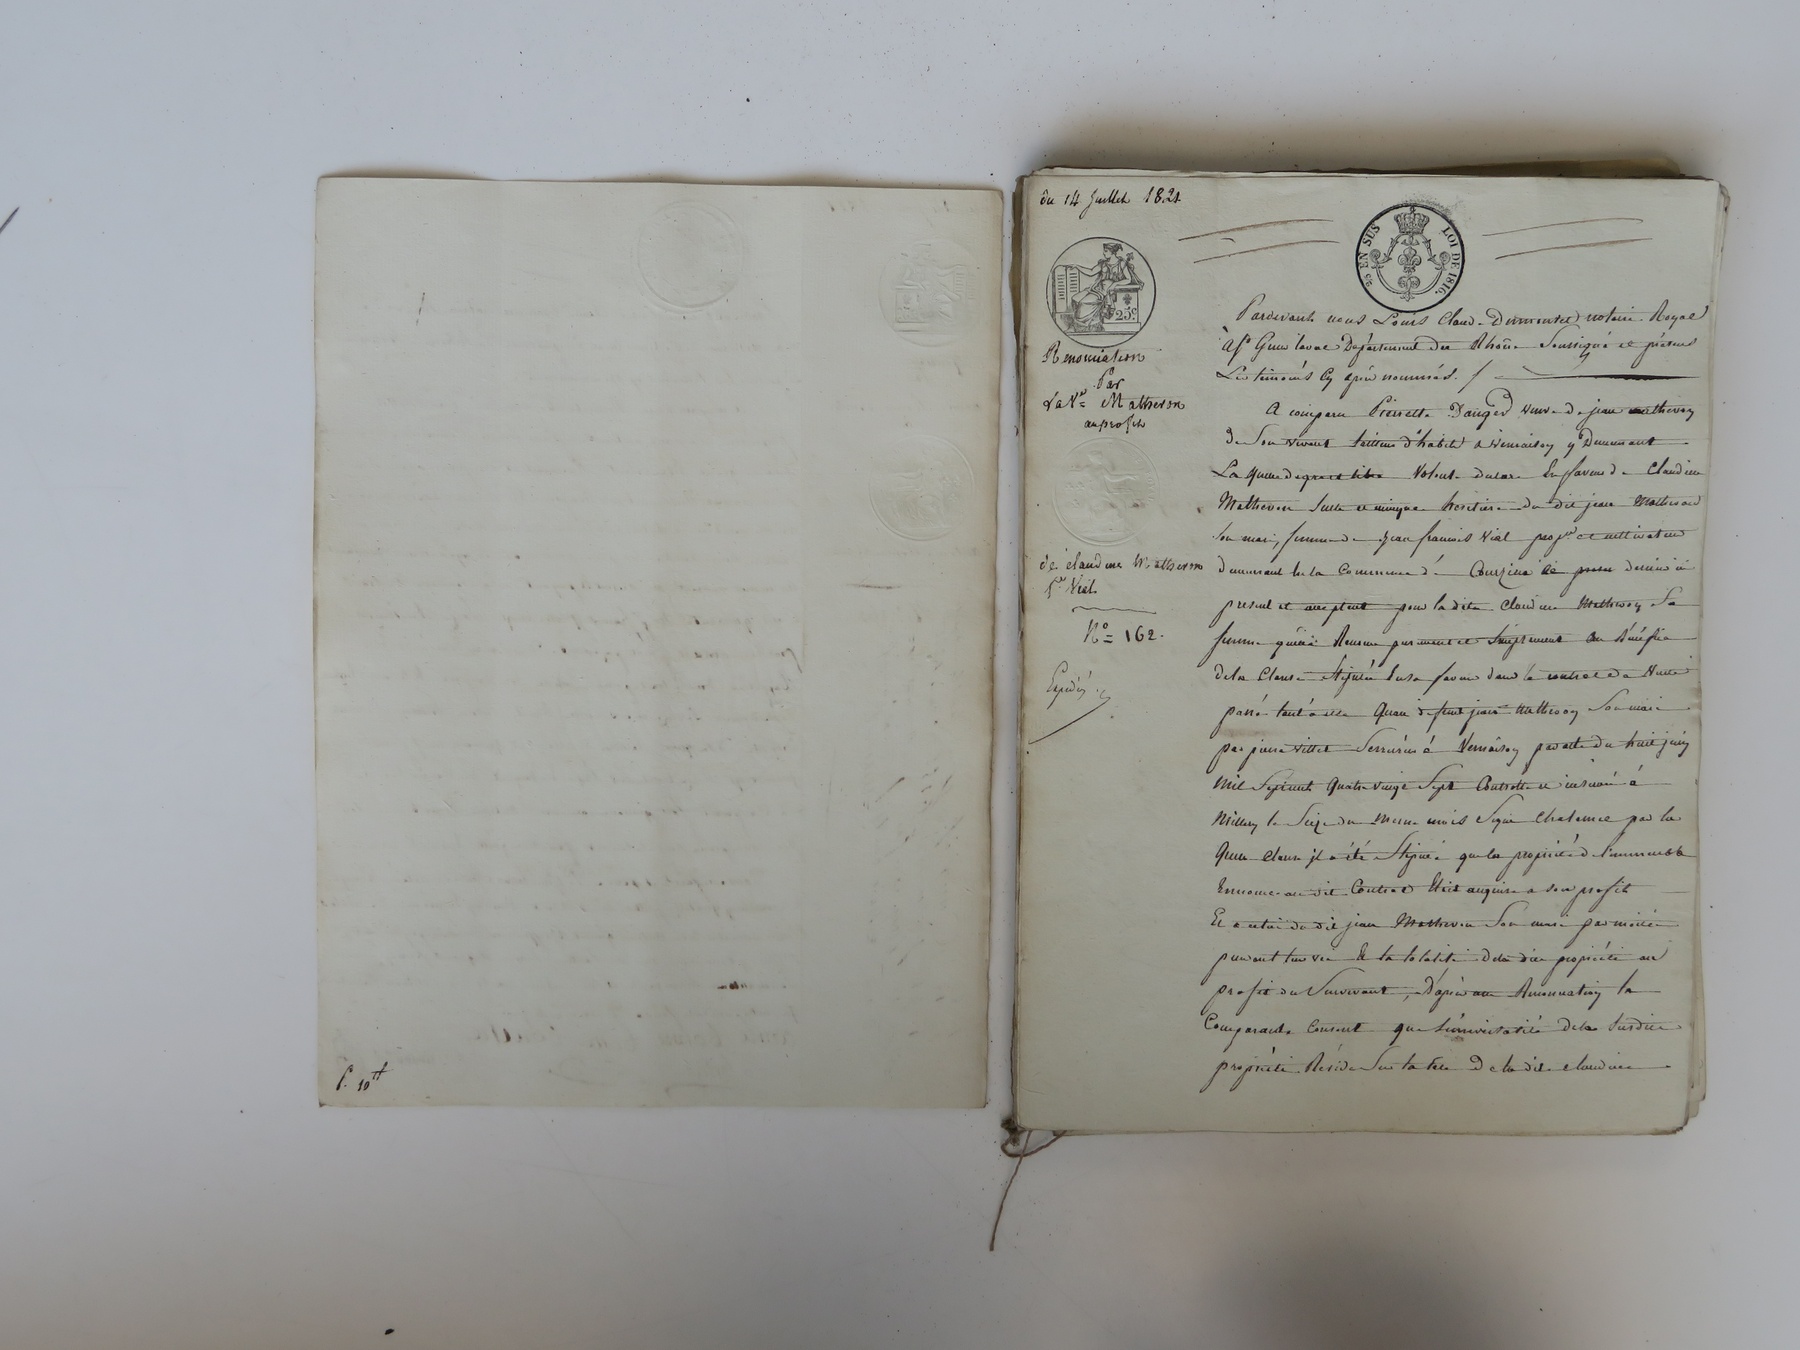 P. 10tt
du 14 Juillet 1821
25 EN SUS LOI DE 1816.
25c
Renonciation
Par
La Ve Mathevon
au profit
de claudine Mathevon
fe Vial
No= 162.
Expédié
Pardevant nous Louis Claude notaire Royal
à St Genis laval Département du Rhône Soussigné et présens
Les témoins cy après nommés. /
A comparu Pierrette Danger veuve de jean mathevon
de Son vivant tailleur d'habits à vernaison y Demeurant
La quelle de libre Volonté En faveur de Claudine
Mathevon Seule et unique héritière du dit jean Mathevon
Son mari, femme de jean françois Vial propre et cultivateur
demeurant En la Commune de Courzieu dernier ici
présent et acceptant pour la dite Claudine Mathevon Sa
femme Renonce purement et Simplement Au Bénéfice
de la Clause Stipulée En sa faveur dans le contrat de Vente
passé tant à elle Qu'au défunt jean Mathevon Son mari
par pierre Serrurier à Vernaison par acte du huit juin
Mil Sept cent Quatre vingt Sept Controllé et insinué à
Millery le Seize du Meme mois Signé par la
Quelle clause il a été Stipulé que la propriété de l'immeuble
Enoncé au dit Contrat Etait acquise a son profit
Et a celui du dit jean Mathevon Son mari par moitié
pendant leur vie Et la totalité de la dite propriété au
profit du Survivant, D'après Renonciation la
Comparante Consent que de la Susdite
propriété Réside Sur la tête De la dite claudine